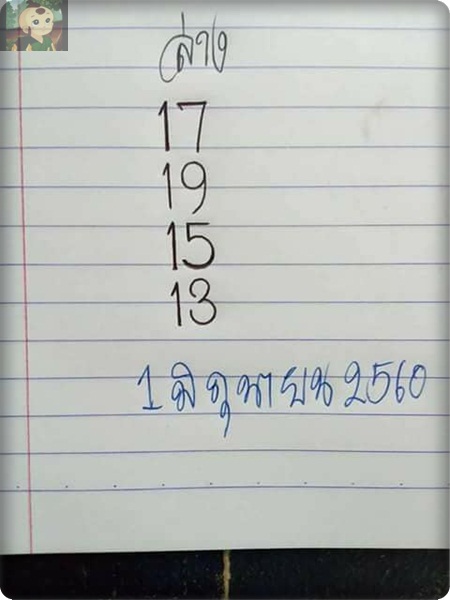 ล่าง
17
19
15
13
1 มิถุนายน 2560